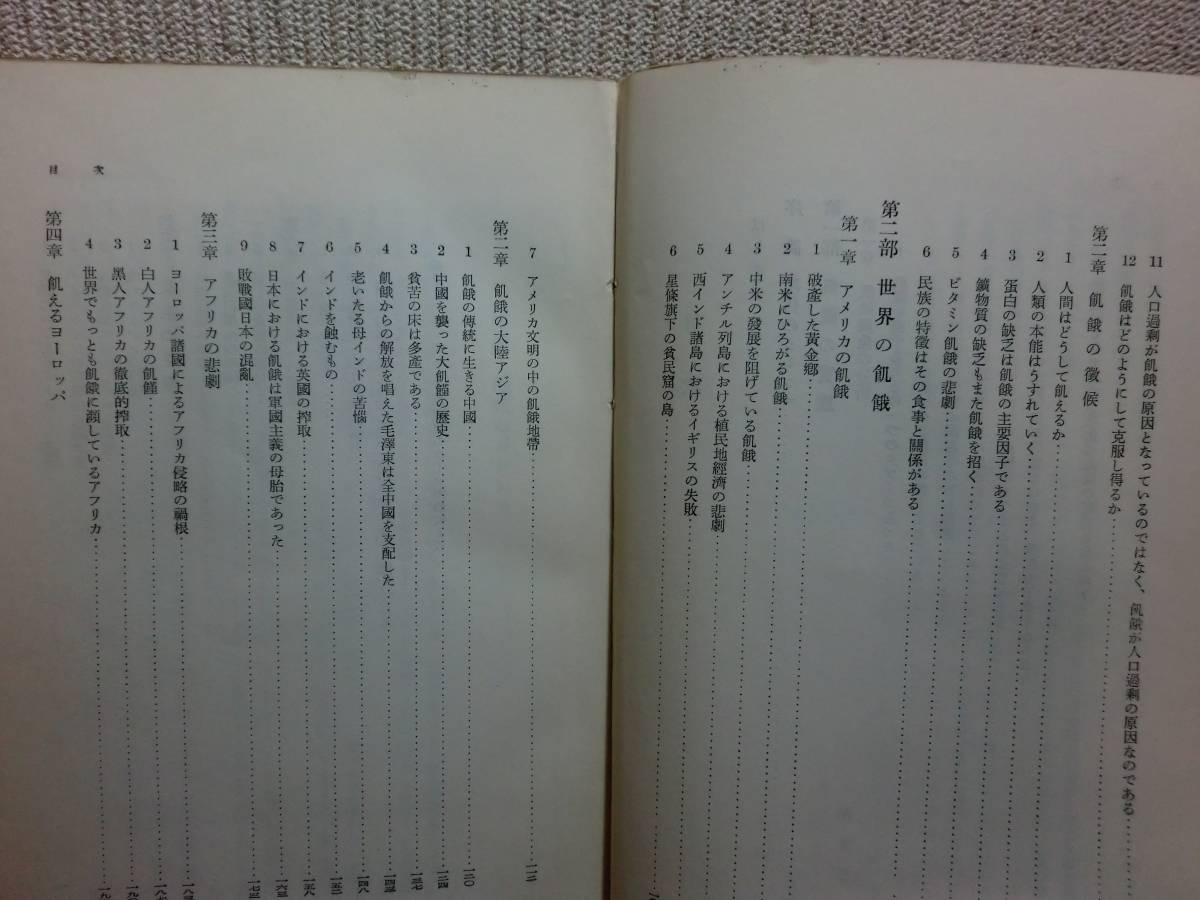 11 人口過剰が飢餓の原因となっているのではなく、飢餓が人口過剰の原因なのである
12 飢餓はどのようにして克服し得るか
第二章 飢餓の徴候
1 人間はどうして飢えるか
2 人類の本能はうすれていく
3 蛋白の缺乏は飢餓の主要因子である
4 鑛物質の缺乏もまた飢餓を招く
5 ビタミン飢餓の悲劇
6 民族の特徴はその食事と關係がある
第二部 世界の飢餓
第一章 アメリカの飢餓
1 破產した黃金鄕
2 南米にひろがる飢餓
3 中米の發展を阻げている飢餓
4 アンチル列島における植民地經濟の悲劇
5 西インド諸島におけるイギリスの失敗
6 星條旗下の貧民窟の島
7 アメリカ文明の中の飢餓地帶 一一二
第二章 飢餓の大陸アジア
1 飢餓の傳統に生きる中國 一二〇
2 中國を襲った大飢饉の歷史 一二四
3 貧苦の床は多產である 一三七
4 飢餓からの解放を唱えた毛澤東は全中國を支配した 一四三
5 老いたる母インドの苦惱 一四八
6 インドを蝕むもの 一五二
7 インドにおける英國の搾取 一五八
8 日本における飢餓は軍國主義の母胎であった 一六三
9 敗戰國日本の混亂 一七三
第三章 アフリカの悲劇
1 ヨーロッパ諸國によるアフリカ侵略の禍根
2 白人アフリカの飢饉
3 黑人アフリカの徹底的搾取
4 世界でもっとも飢餓に瀕しているアフリカ
第四章 飢えるヨーロッパ
目次